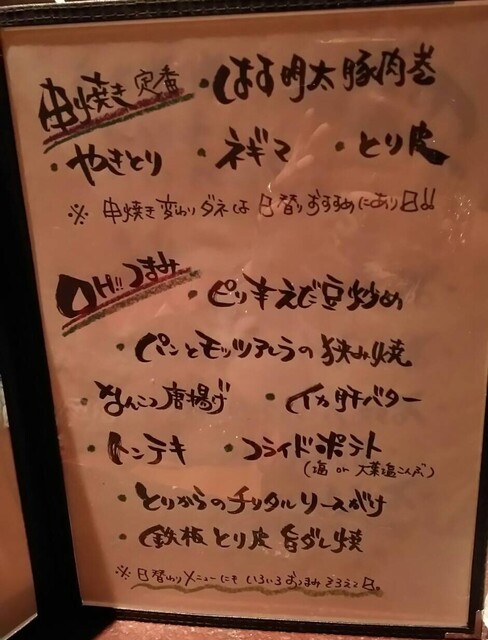 串焼き 定番 ・はす明太豚肉巻
・やきとり ・ネギマ ・とり皮
※ 串焼き変わりダネは日替りおすすめにあり〼!!
OH!! つまみ ・ピリ辛えだ豆炒め
・パンとモッツアレラの挟み焼
・なんこつ唐揚げ ・イカ肝バター
・トンテキ ・フライドポテト
(塩 or 大葉塩こんぶ)
・とりからのチリタルソースがけ
・鉄板とり皮旨ダレ焼
※日替わりメニューにもいろいろおつまみそろえて〼。